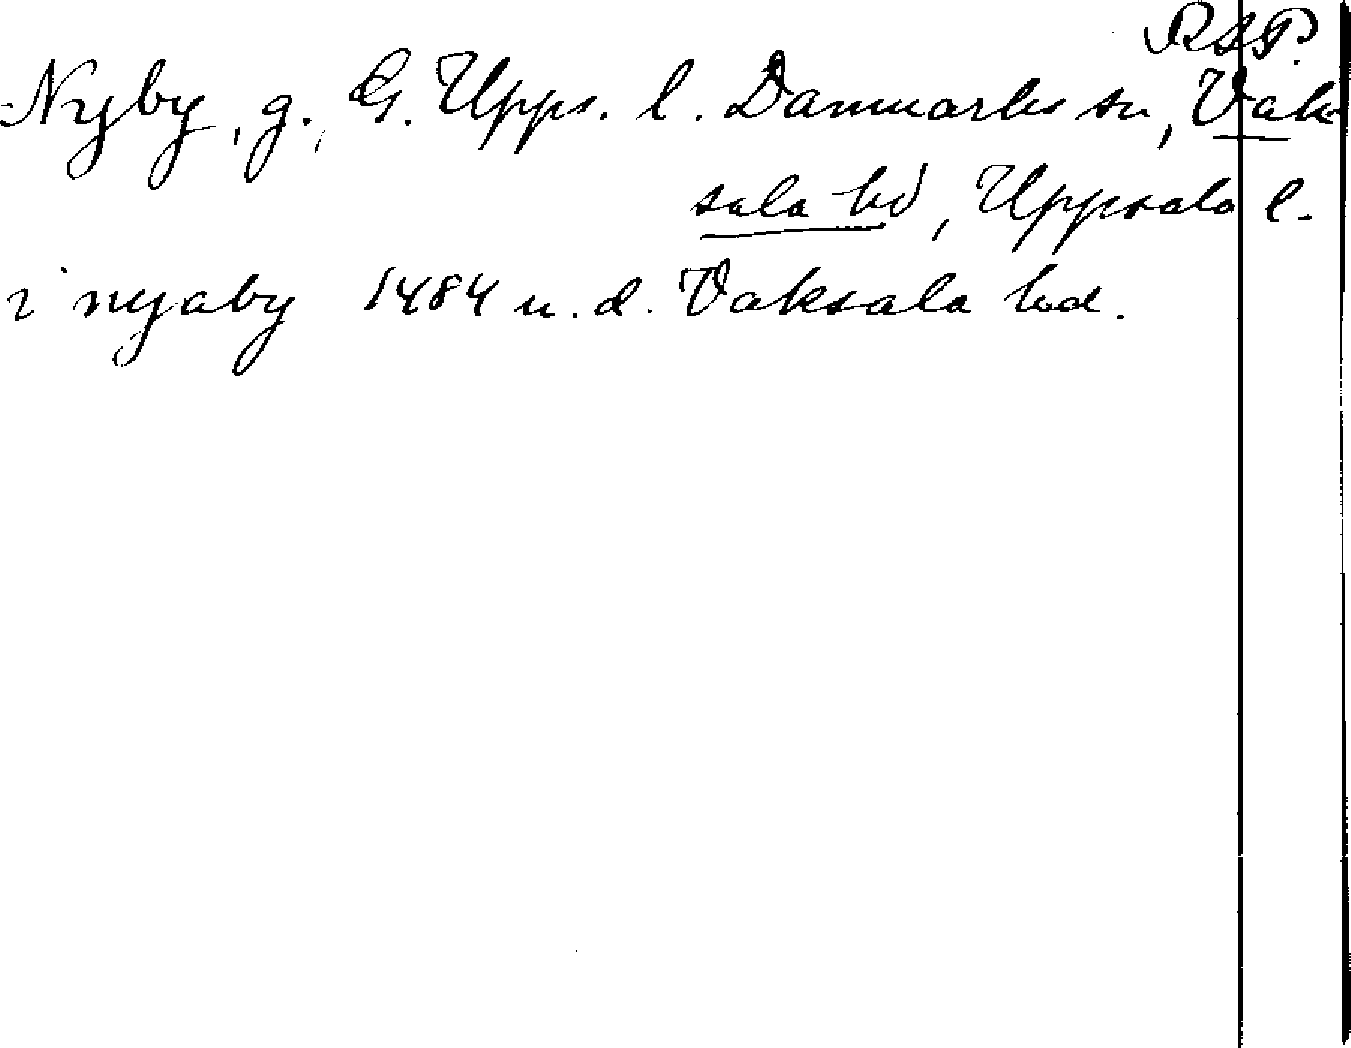 RAP.
Nyby, g., G. Upps. l. Danmarks sn, Vak-
sala hd, Uppsala l.
i nyaby 1484 u. d. Vaksala hd.